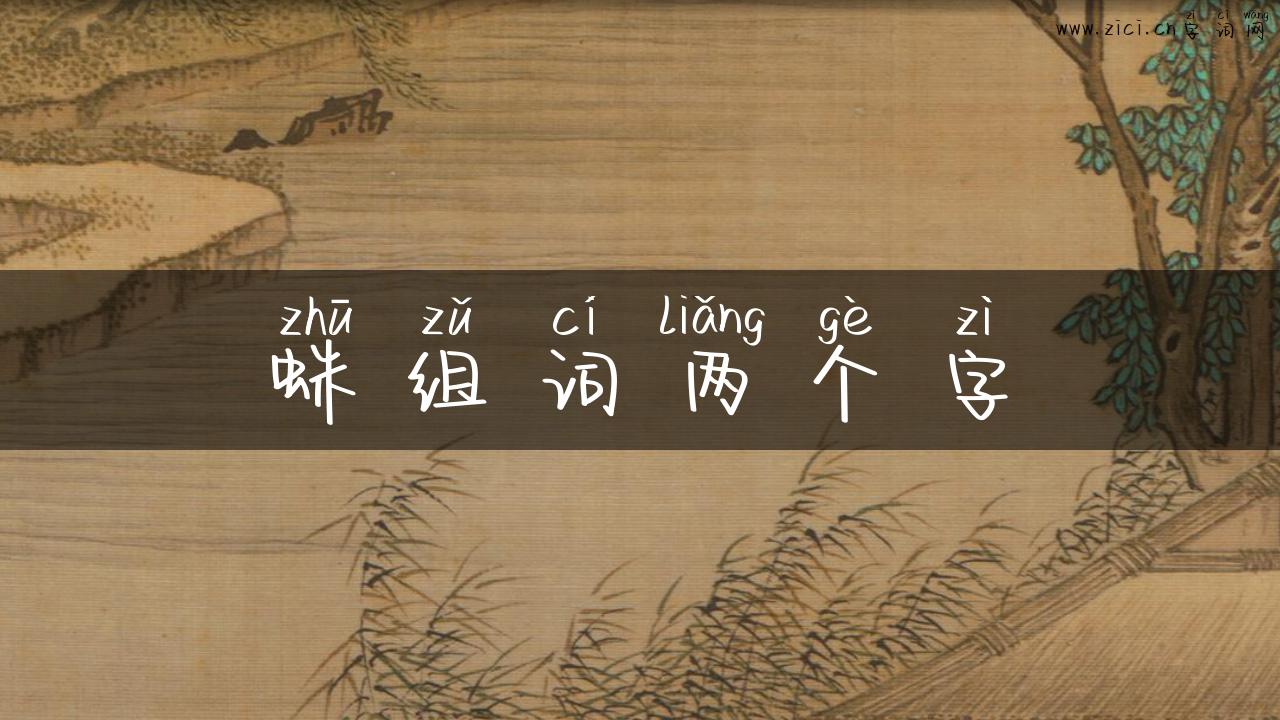 zì cí wǎng
www.zici.cn字词网
zhū zǔ cí liǎng gè zì
蛛组词两个字